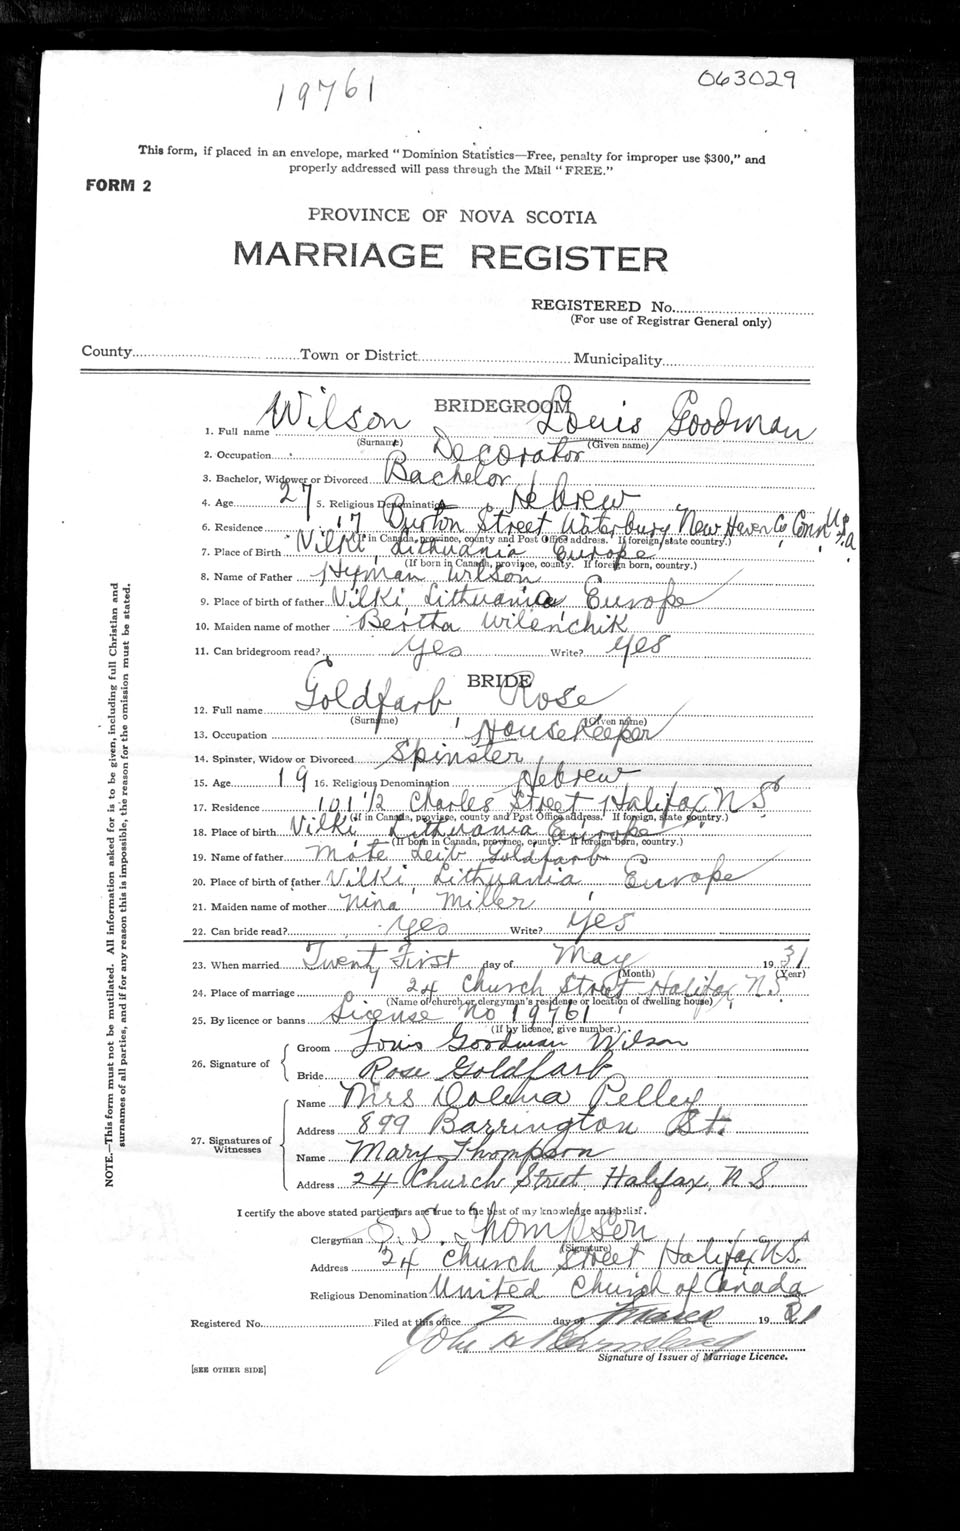 19761
063029
This form, if placed in an envelope, marked "Dominion Statistics—Free, penalty for improper use $300," and
properly addressed will pass through the Mail "FREE."
FORM 2
PROVINCE OF NOVA SCOTIA
MARRIAGE REGISTER
REGISTERED No.
(For use of Registrar General only)
County Town or District Municipality
BRIDEGROOM
1. Full name Wilson Louis Goodman
(Surname) (Given name)
2. Occupation Decorator
3. Bachelor, Widower or Divorced Bachelor
4. Age 27 5. Religious Denomination Hebrew
6. Residence 17 Burton Street Waterbury New Haven Co Conn U.S.a
(If in Canada, province, county and Post Office address. If foreign, state country.)
7. Place of Birth Vilki, Lithuania Europe
(If born in Canada, province, county. If foreign born, country.)
8. Name of Father Hyman Wilson
9. Place of birth of father Vilki, Lithuania, Europe
10. Maiden name of mother Bertha Wilenchik
11. Can bridegroom read? Yes Write? Yes
BRIDE
12. Full name Goldfarb, Rose
(Surname) (Given name)
13. Occupation Housekeeper
14. Spinster, Widow or Divorced Spinster
15. Age 19 16. Religious Denomination Hebrew
17. Residence 101 1/2 Charles Street Halifax N S
(If in Canada, province, county and Post Office address. If foreign, state country.)
18. Place of birth Vilki Lithuania Europe
(If born in Canada, province, county. If foreign born, country.)
19. Name of father Mote Leib Goldfarb
20. Place of birth of father Vilki, Lithuania Europe
21. Maiden name of mother Nina Miller
22. Can bride read? Yes Write? Yes
23. When married Twenty First day of May 1931
(Month) (Year)
24. Place of marriage 24 Church Street Halifax N.S.
(Name of church or clergyman's residence or location of dwelling house)
25. By licence or banns License No 19761
(If by licence, give number.)
26. Signature of Groom Louis Goodman Wilson
Bride Rose Goldfarb
27. Signatures of Witnesses Name Mrs Dolena Pelley
Address 899 Barrington St.
Name Mary Thompson
Address 24 Church Street Halifax, N S.
I certify the above stated particulars are true to the best of my knowledge and belief.
Clergyman Thompson
(Signature)
Address 24 Church Street Halifax N.S.
Religious Denomination United Church of Canada
Registered No. Filed at this office 2 day of 1931
John
Signature of Issuer of Marriage Licence.
[SEE OTHER SIDE]
NOTE.—This form must not be mutilated. All information asked for is to be given, including full Christian and
surnames of all parties, and if for any reason this is impossible, the reason for the omission must be stated.